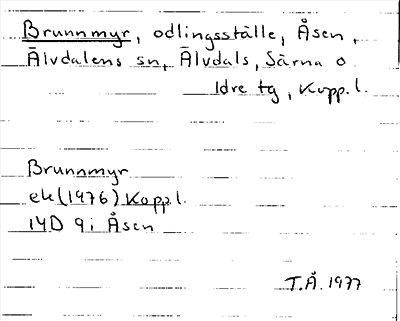 Brunnmyr, odlingsställe, Åsen,
Älvdalens sn, Älvdals, Särna o
Idre tg, Kopp.l.
Brunnmyr
ek (1976) Kopp.l.
14D 9i Åsen
T.Å. 1977